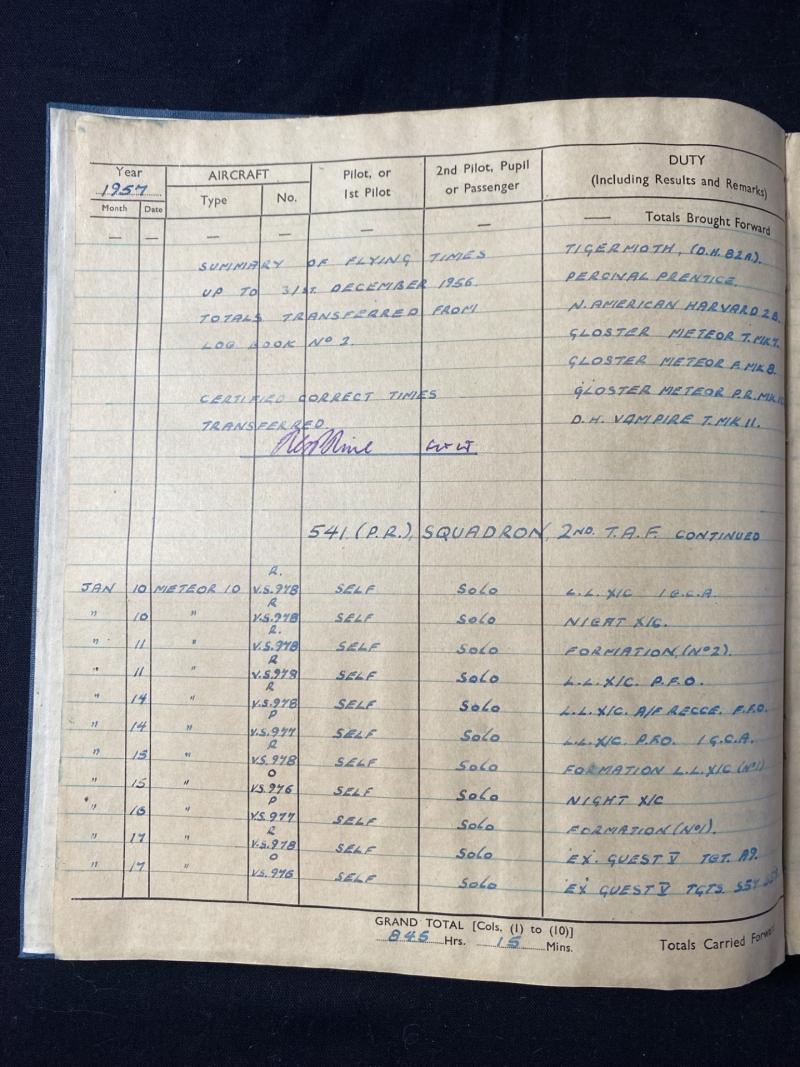 Year AIRCRAFT Pilot, or 2nd Pilot, Pupil DUTY
1957 Type No. 1st Pilot or Passenger (Including Results and Remarks)
Month Date
— — — — — — — Totals Brought Forward
SUMMARY OF FLYING TIMES TIGERMOTH, (D.H.82A).
UP TO 31ST. DECEMBER 1956. PERCIVAL PRENTICE.
TOTALS TRANSFERRED FROM N. AMERICAN HARVARD 2B.
LOG BOOK Nº 2. GLOSTER METEOR T.MK7.
GLOSTER METEOR F.MK8.
CERTIFIED CORRECT TIMES GLOSTER METEOR P.R.MK.10
TRANSFERRED. D.H. VAMPIRE T.MK 11.
541.(P.R.), SQUADRON, 2ND. T.A.F. CONTINUED
R.
JAN 10 METEOR 10 V.S.978 SELF SOLO L.L. X/C 1 G.C.A.
R
" 10 " V.S.978 SELF SOLO NIGHT X/C.
R.
" 11 " V.S.978 SELF SOLO FORMATION, (Nº2).
R
" 11 " V.S.978 SELF SOLO L.L. X/C. P.F.O.
R
" 14 " V.S.978 SELF SOLO L.L. X/C. A/F RECCE. P.F.O.
P
" 14 " V.S.977 SELF SOLO L.L. X/C. P.F.O. 1 G.C.A.
R
" 15 " V.S.978 SELF SOLO FORMATION L.L. X/C (Nº1)
O
" 15 " V.S.976 SELF SOLO NIGHT X/C
P
" 16 " V.S.977 SELF SOLO FORMATION (Nº1).
R
" 17 " V.S.978 SELF SOLO EX. GUEST V TGT. A9.
O
" 17 " V.S.976 SELF SOLO EX GUEST V TGTS.
GRAND TOTAL [Cols. (1) to (10)]
845 Hrs. 15 Mins. Totals Carried Forward